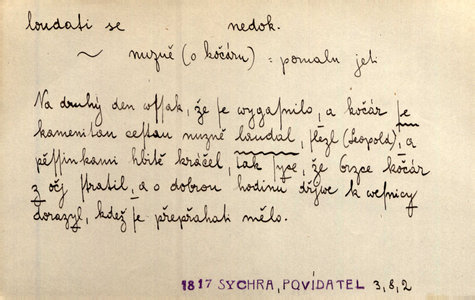 loudati se nedok.
~ nuzně (o kočáru) = pomalu jeti
Na druhý den wssak, že se wygasnilo, a kočár se
kamenitau cestau nuzně laudal, slezl (Leopold), a
pěssinkami hbitě kráčel, tak lyse, že brzce kočár
z očj stratil, a o dobrou hodinu dřjwe k wesnicy
dorazyl, kdež se přepřahati mělo.
1817 SYCHRA, POVÍDATEL 3,8,2